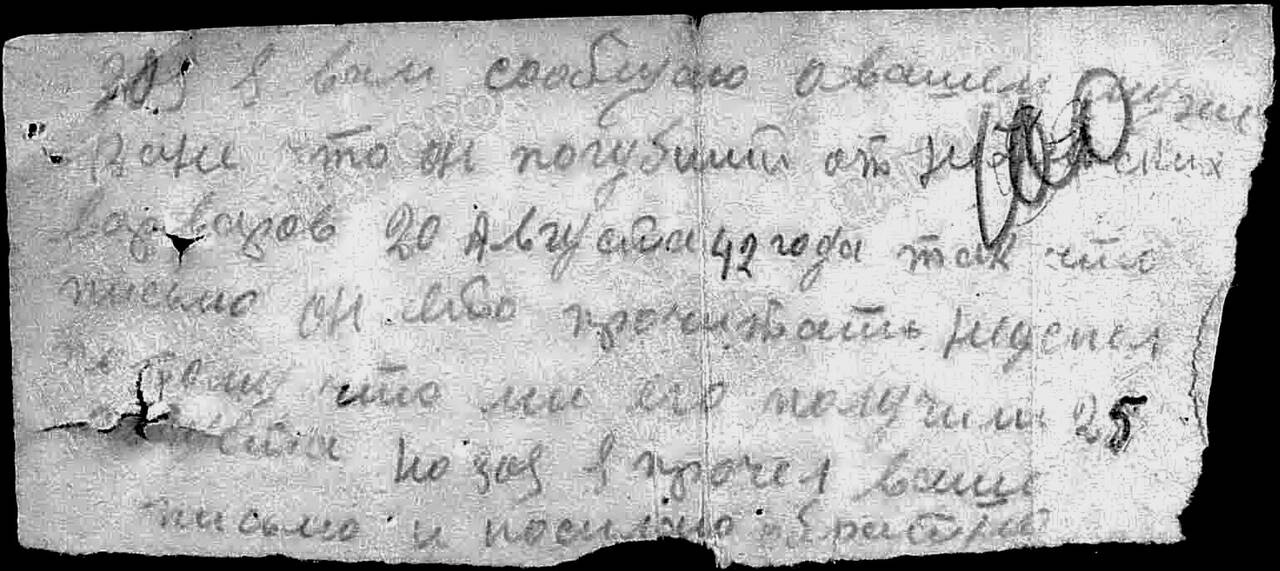 я вам сообщаю о вашем
что он погубший от
варваров 20 Августа 42 года так что
письмо он ваше прочитать неуспел
потому что ми его получили 25
Августа я прочел ваше
письмо и посилаю обратно